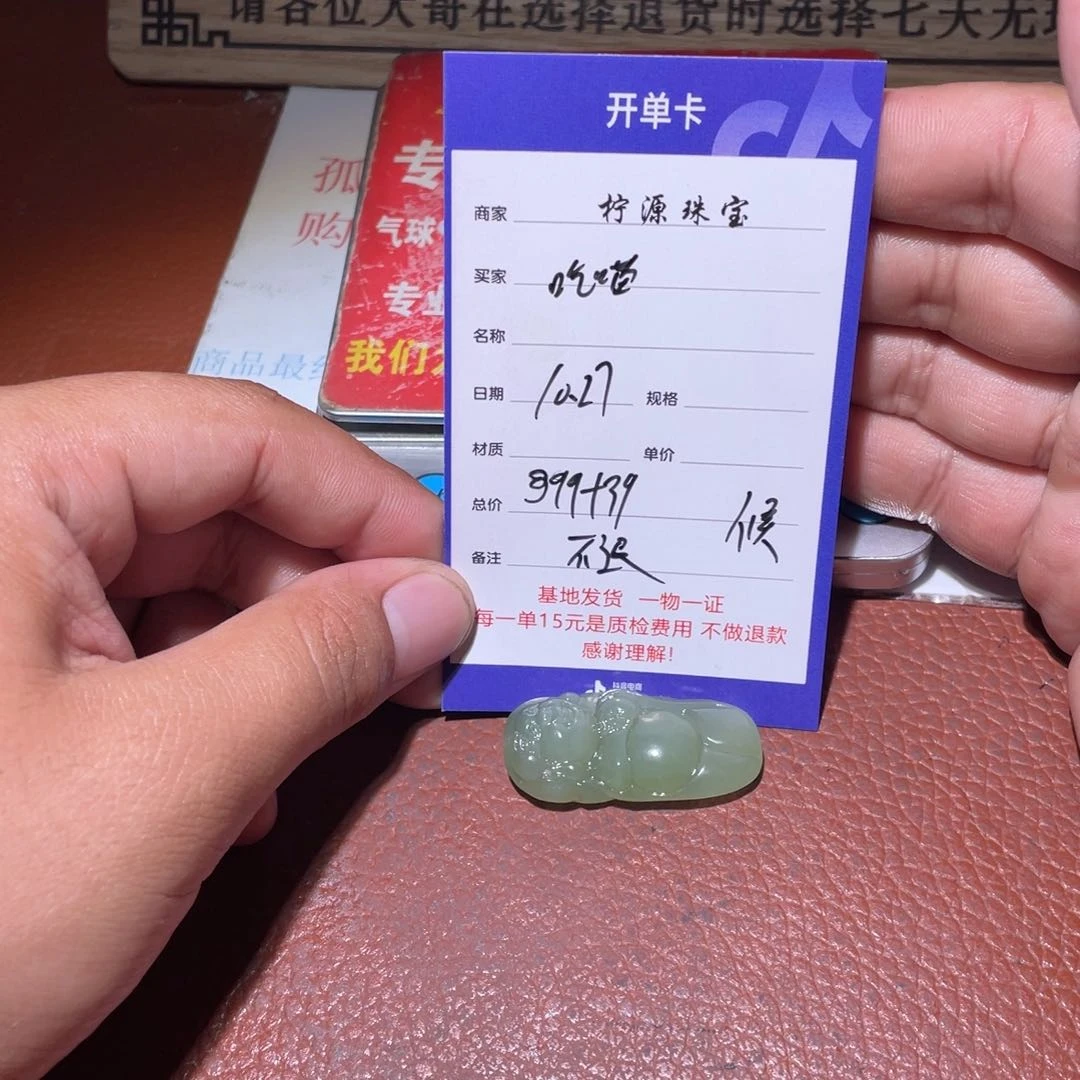 请各位大哥在选择退货时选择七天无理
开单卡
商家 柠源珠宝
买家 吃喵
名称
日期 10.27 规格
材质 单价
总价 399+39 候
备注 不退
基地发货 一物一证
每一单15元是质检费用 不做退款
感谢理解!
抖音电商
孤
购
商品最终
专
气球
专业
我们